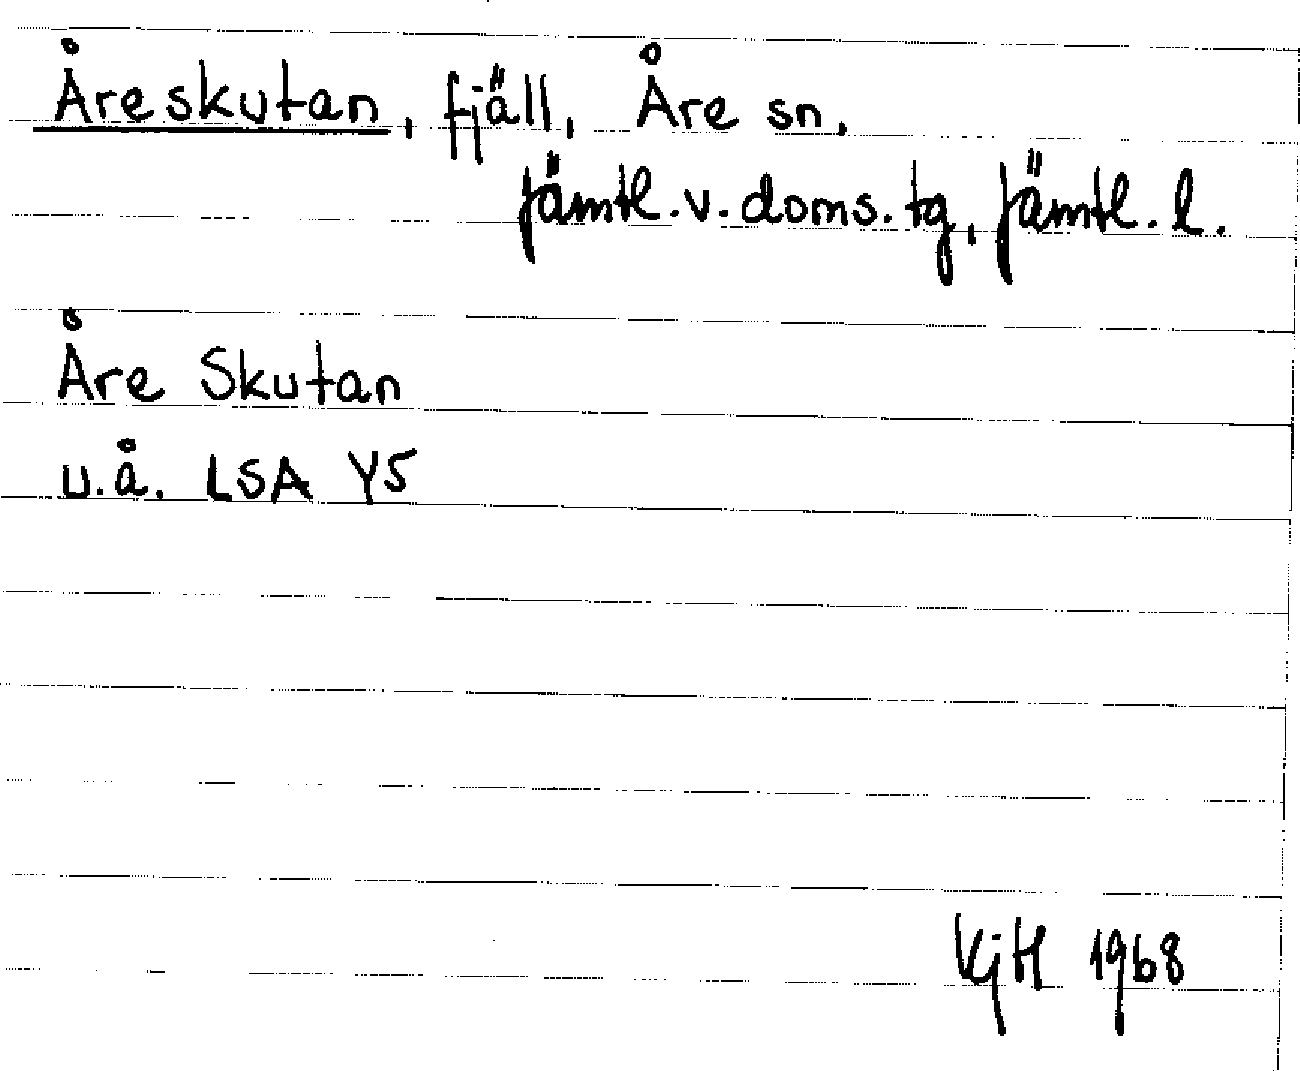 Åreskutan, fjäll, Åre sn,
Jämtl. v. doms. tg, Jämtl. l.
Åre Skutan
u.å. LSA Y5
KjH 1968